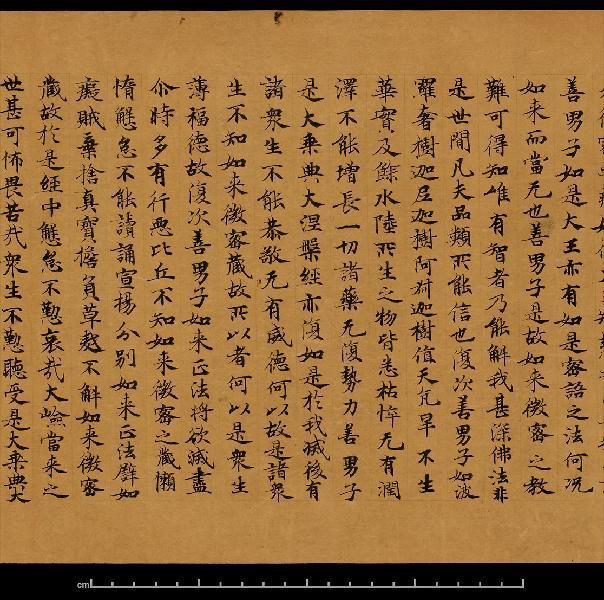 善男子如是大王亦有如是密語之法何況
如来而當无也善男子是故如来微密之教
難可得知唯有智者乃能解我甚深佛法非
是世間凡夫品類所能信也復次善男子如波
羅奢樹迦尼迦樹阿叔迦樹值天亢旱不生
華實及餘水陸所生之物皆悉枯悴无有潤
澤不能增長一切諸藥无復勢力善男子
是大乘典大涅槃經亦復如是於我滅後有
諸衆生不能恭敬无有威德何以故是諸衆
生不知如来微密藏故所以者何以是衆生
薄福德故復次善男子如来正法將欲滅盡
尒時多有行惡比丘不知如来微密之藏懶
惰懈怠不能讀誦宣揚分别如来正法譬如
癡賊棄捨真寶擔負草𪍿不解如来微密
藏故於是經中懈怠不懃哀哉大嶮當来之
世甚可怖畏苦哉衆生不懃聽受是大乘典大